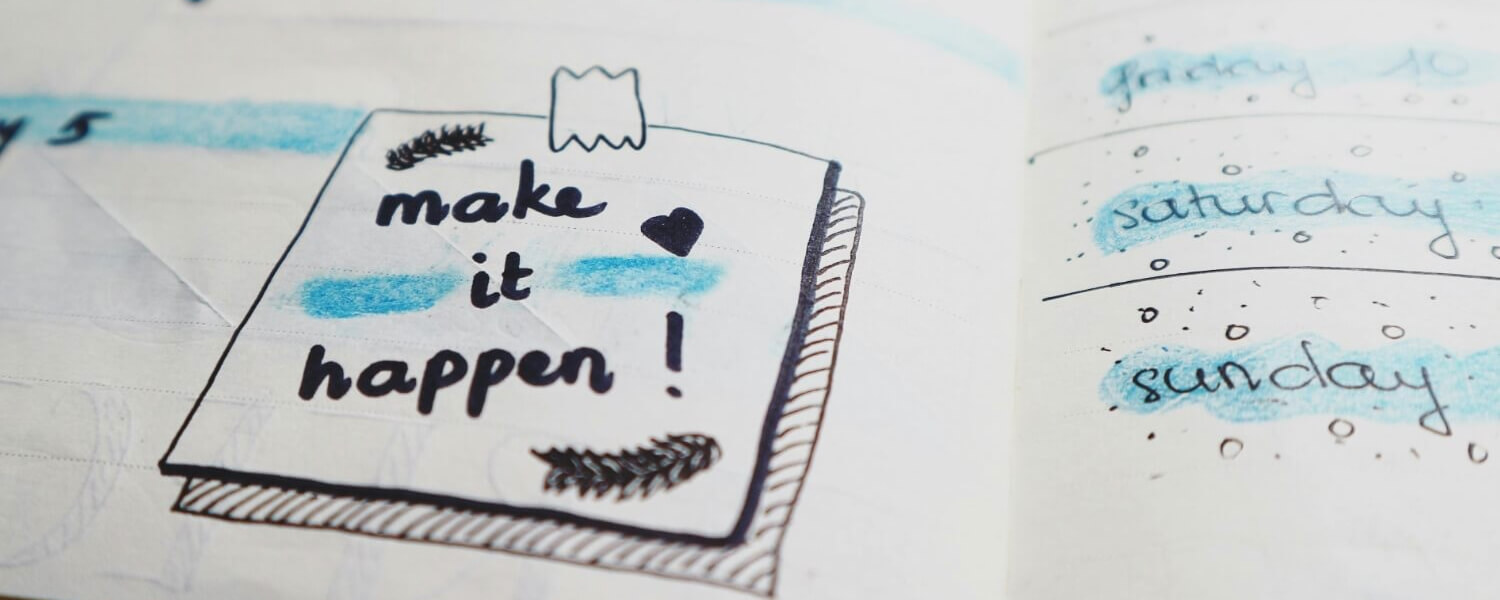 y 5
make
it
happen !
friday 10
saturday
sunday